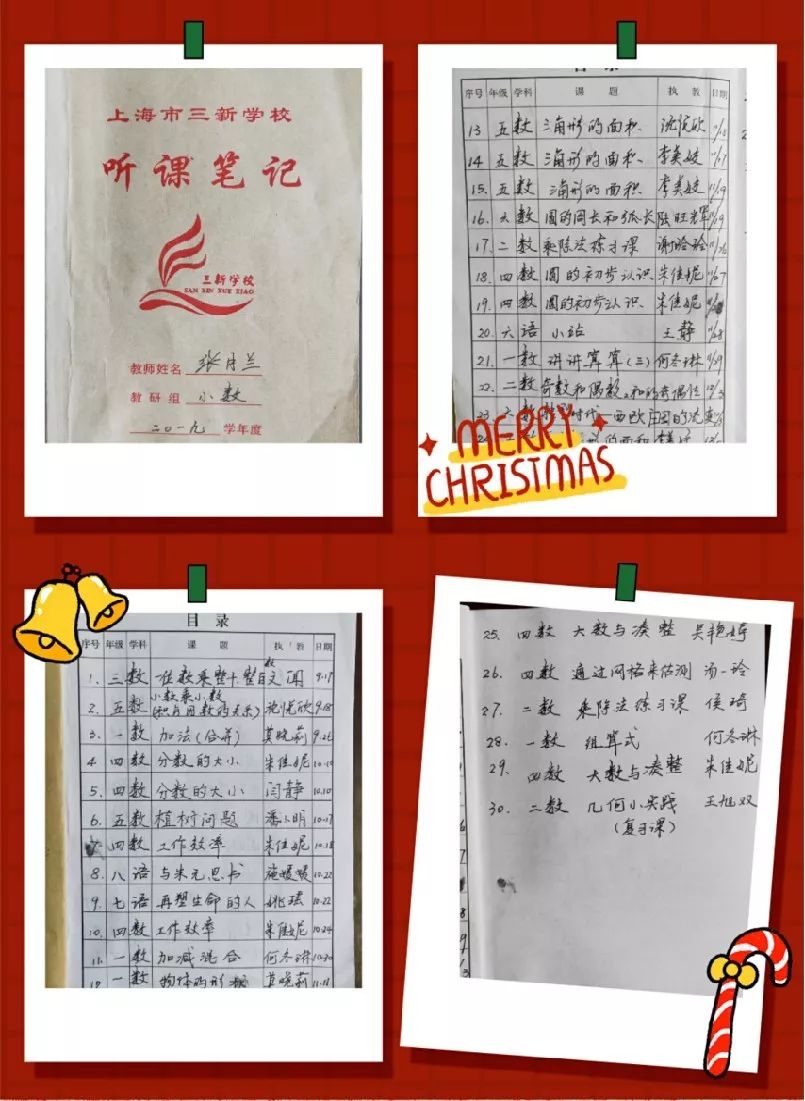 上海市三新学校
听课笔记
三新学校
SAN XIN XUE XIAO
教师姓名 张月兰
教研组 小数
二〇一九 学年度
目录
序号 年级 学科 课题 执教 日期
13 五 数 三角形的面积
14 五 数 三角形的面积 李美姣
15. 五 数 三角形的面积 李美姣
16. 六 数 圆的周长和弧长 陆旺光辉
17. 二 数 乘除法练习课 谢玲玲
18. 四 数 圆的初步认识 朱佳妮
19. 四 数 圆的初步认识 朱佳妮
20. 六 语 小站 王静
21. 一 数 讲讲算算(三) 何冬琳
22. 二 数 奇数和偶数
23 时代 西欧庄园的
24 的面积
MERRY
CHRISTMAS
目录
序号 年级 学科 课题 执教 日期
1. 三 数 文闻 9.17
2. 五 数 小数乘小数 沈悦欣 9.18
(积与因数的关系)
3. 一 数 加法(合并) 莫晓莉 9.26
4 四 数 分数的大小 朱佳妮 10.10
5. 四 数 分数的大小 闫静 10.10
6. 五 数 植树问题 潘小明 10.17
四 数 工作效率 朱佳妮 10.18
8. 八 语 与朱元思书 施媛媛 10.22
9. 七 语 再塑生命的人 姚瑶 10.22
10. 四 数 工作效率 朱佳妮 10.24
11. 一 数 加减混合 何冬琳 10.30
12 一 数 物体的形状 莫晓莉 11.18
25. 四数 大数与凑整 吴艳婷
26. 四数 通过网格来估测 汤一玲
27. 二数 乘除法练习课 侯琦
28. 一数 组算式 何冬琳
29. 四数 大数与凑整 朱佳妮
30. 二数 几何小实践 王旭双
(复习课)